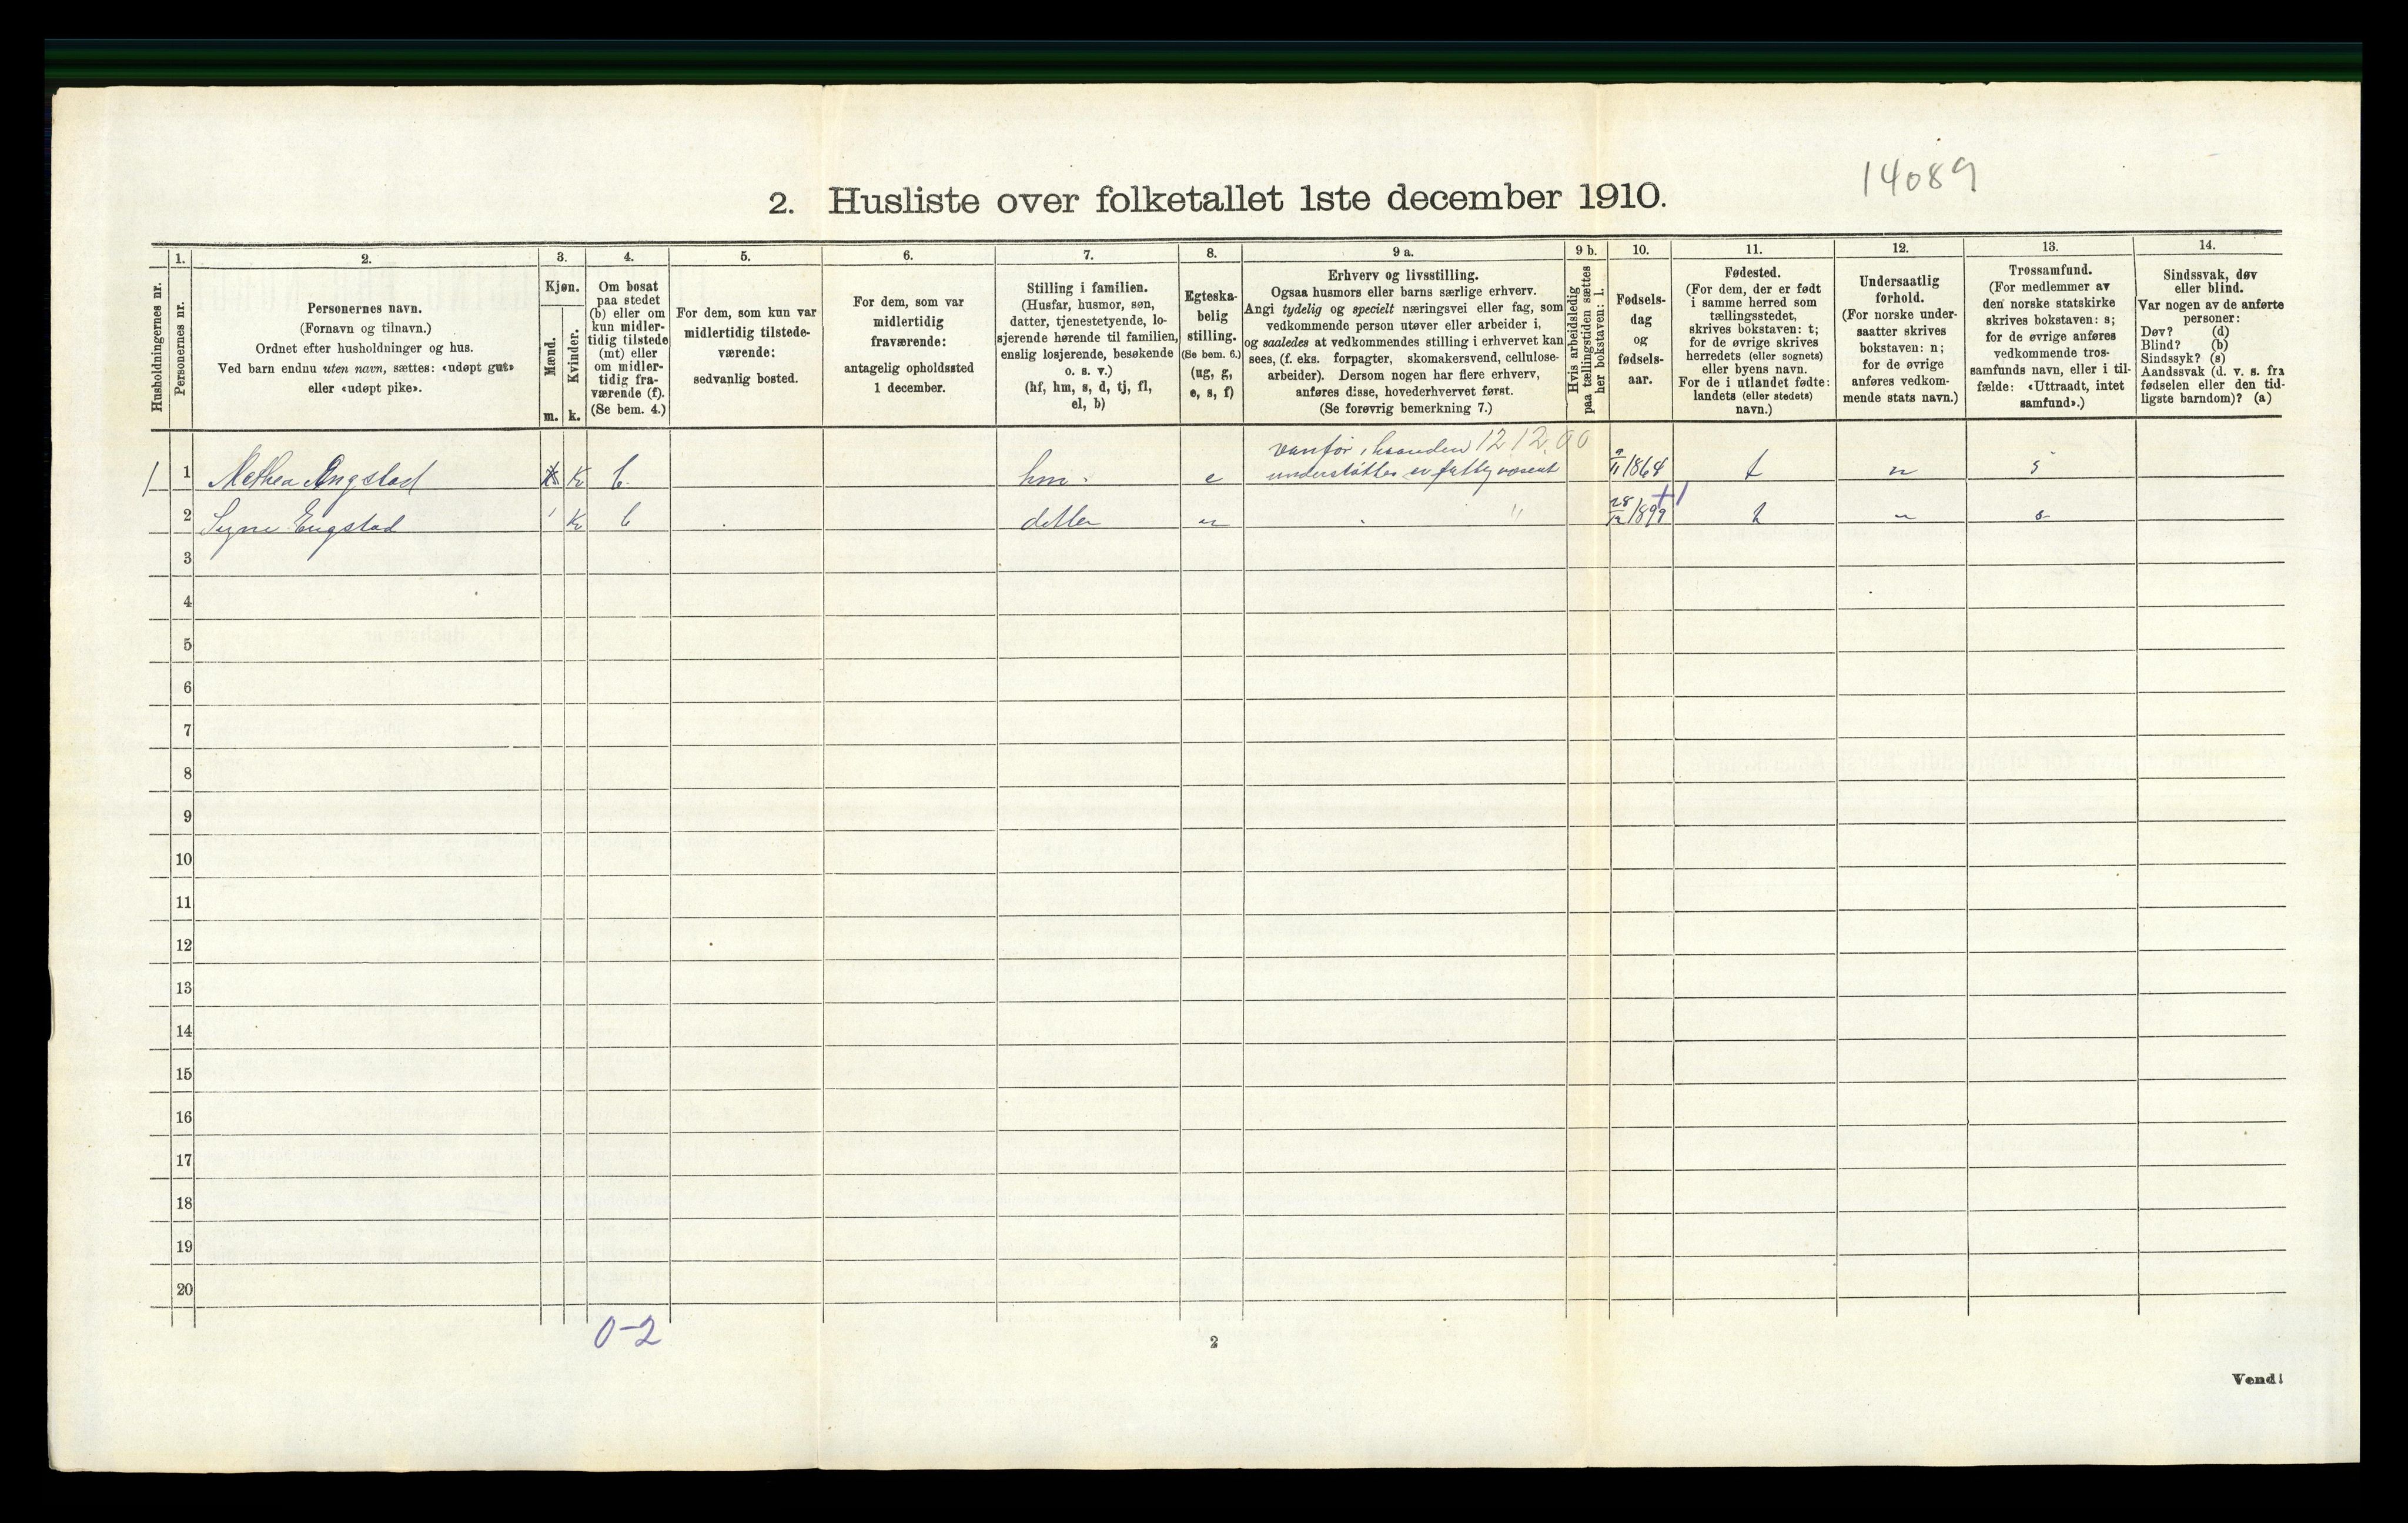 14089
2. Husliste over folketallet 1ste december 1910.
Husholdningernes nr.
1.
Personernes nr.
2.
Personernes navn.
(Fornavn og tilnavn.)
Ordnet efter husholdninger og hus.
Ved barn endnu uten navn, sættes: «udøpt gut»
eller «udøpt pike».
3.
Kjøn.
Mænd.
m.
Kvinder.
k.
4.
Om bosat
paa stedet
(b) eller om
kun midler-
tidig tilstede
(mt) eller
om midler-
tidig fra-
værende (f).
(Se bem. 4.)
5.
For dem, som kun var
midlertidig tilstede-
værende:
sedvanlig bosted.
6.
For dem, som var
midlertidig
fraværende:
antagelig opholdssted
1 december.
7.
Stilling i familien.
(Husfar, husmor, søn,
datter, tjenestetyende, lo-
sjerende hørende til familien,
enslig losjerende, besøkende
o. s. v.)
(hf, hm, s, d, tj, fl,
el, b)
8.
Egteska-
belig
stilling.
(Se bem. 6.)
(ug, g,
e, s, f)
9 a.
Erhverv og livsstilling.
Ogsaa husmors eller barns særlige erhverv.
Angi tydelig og specielt næringsvei eller fag, som
vedkommende person utøver eller arbeider i,
og saaledes at vedkommendes stilling i erhvervet kan
sees, (f. eks. forpagter, skomakersvend, cellulose-
arbeider). Dersom nogen har flere erhverv,
anføres disse, hovederhvervet først.
(Se forøvrig bemerkning 7.)
9 b.
Hvis arbeidsledig
paa tællingstiden sættes
her bokstaven: l.
10.
Fødsels-
dag
og
fødsels-
aar.
11.
Fødested.
(For dem, der er født
i samme herred som
tællingsstedet,
skrives bokstaven: t;
for de øvrige skrives
herredets (eller sognets)
eller byens navn.
For de i utlandet fødte:
landets (eller stedets)
navn.)
12.
Undersaatlig
forhold.
(For norske under-
saatter skrives
bokstaven: n;
for de øvrige
anføres vedkom-
mende stats navn.)
13.
Trossamfund.
(For medlemmer av
den norske statskirke
skrives bokstaven: s;
for de øvrige anføres
vedkommende tros-
samfunds navn, eller i til-
fælde: «Uttraadt, intet
samfund».)
14.
Sindssvak, døv
eller blind.
Var nogen av de anførte
personer:
Døv? (d)
Blind? (b)
Sindssyk? (s)
Aandssvak (d. v. s. fra
fødselen eller den tid-
ligste barndom)? (a)
vanfør i haanden 12 12.00
1 1 Methea Engstad K b hm. e understøttes av fattigvæsent 9/11 1864 t n s
2 Signe Engstad K b detter " 28/12 1899 t s
3
4
5
6
7
8
9
10
11
12
13
14
15
16
17
18
19
20
0-2
2
Vend!